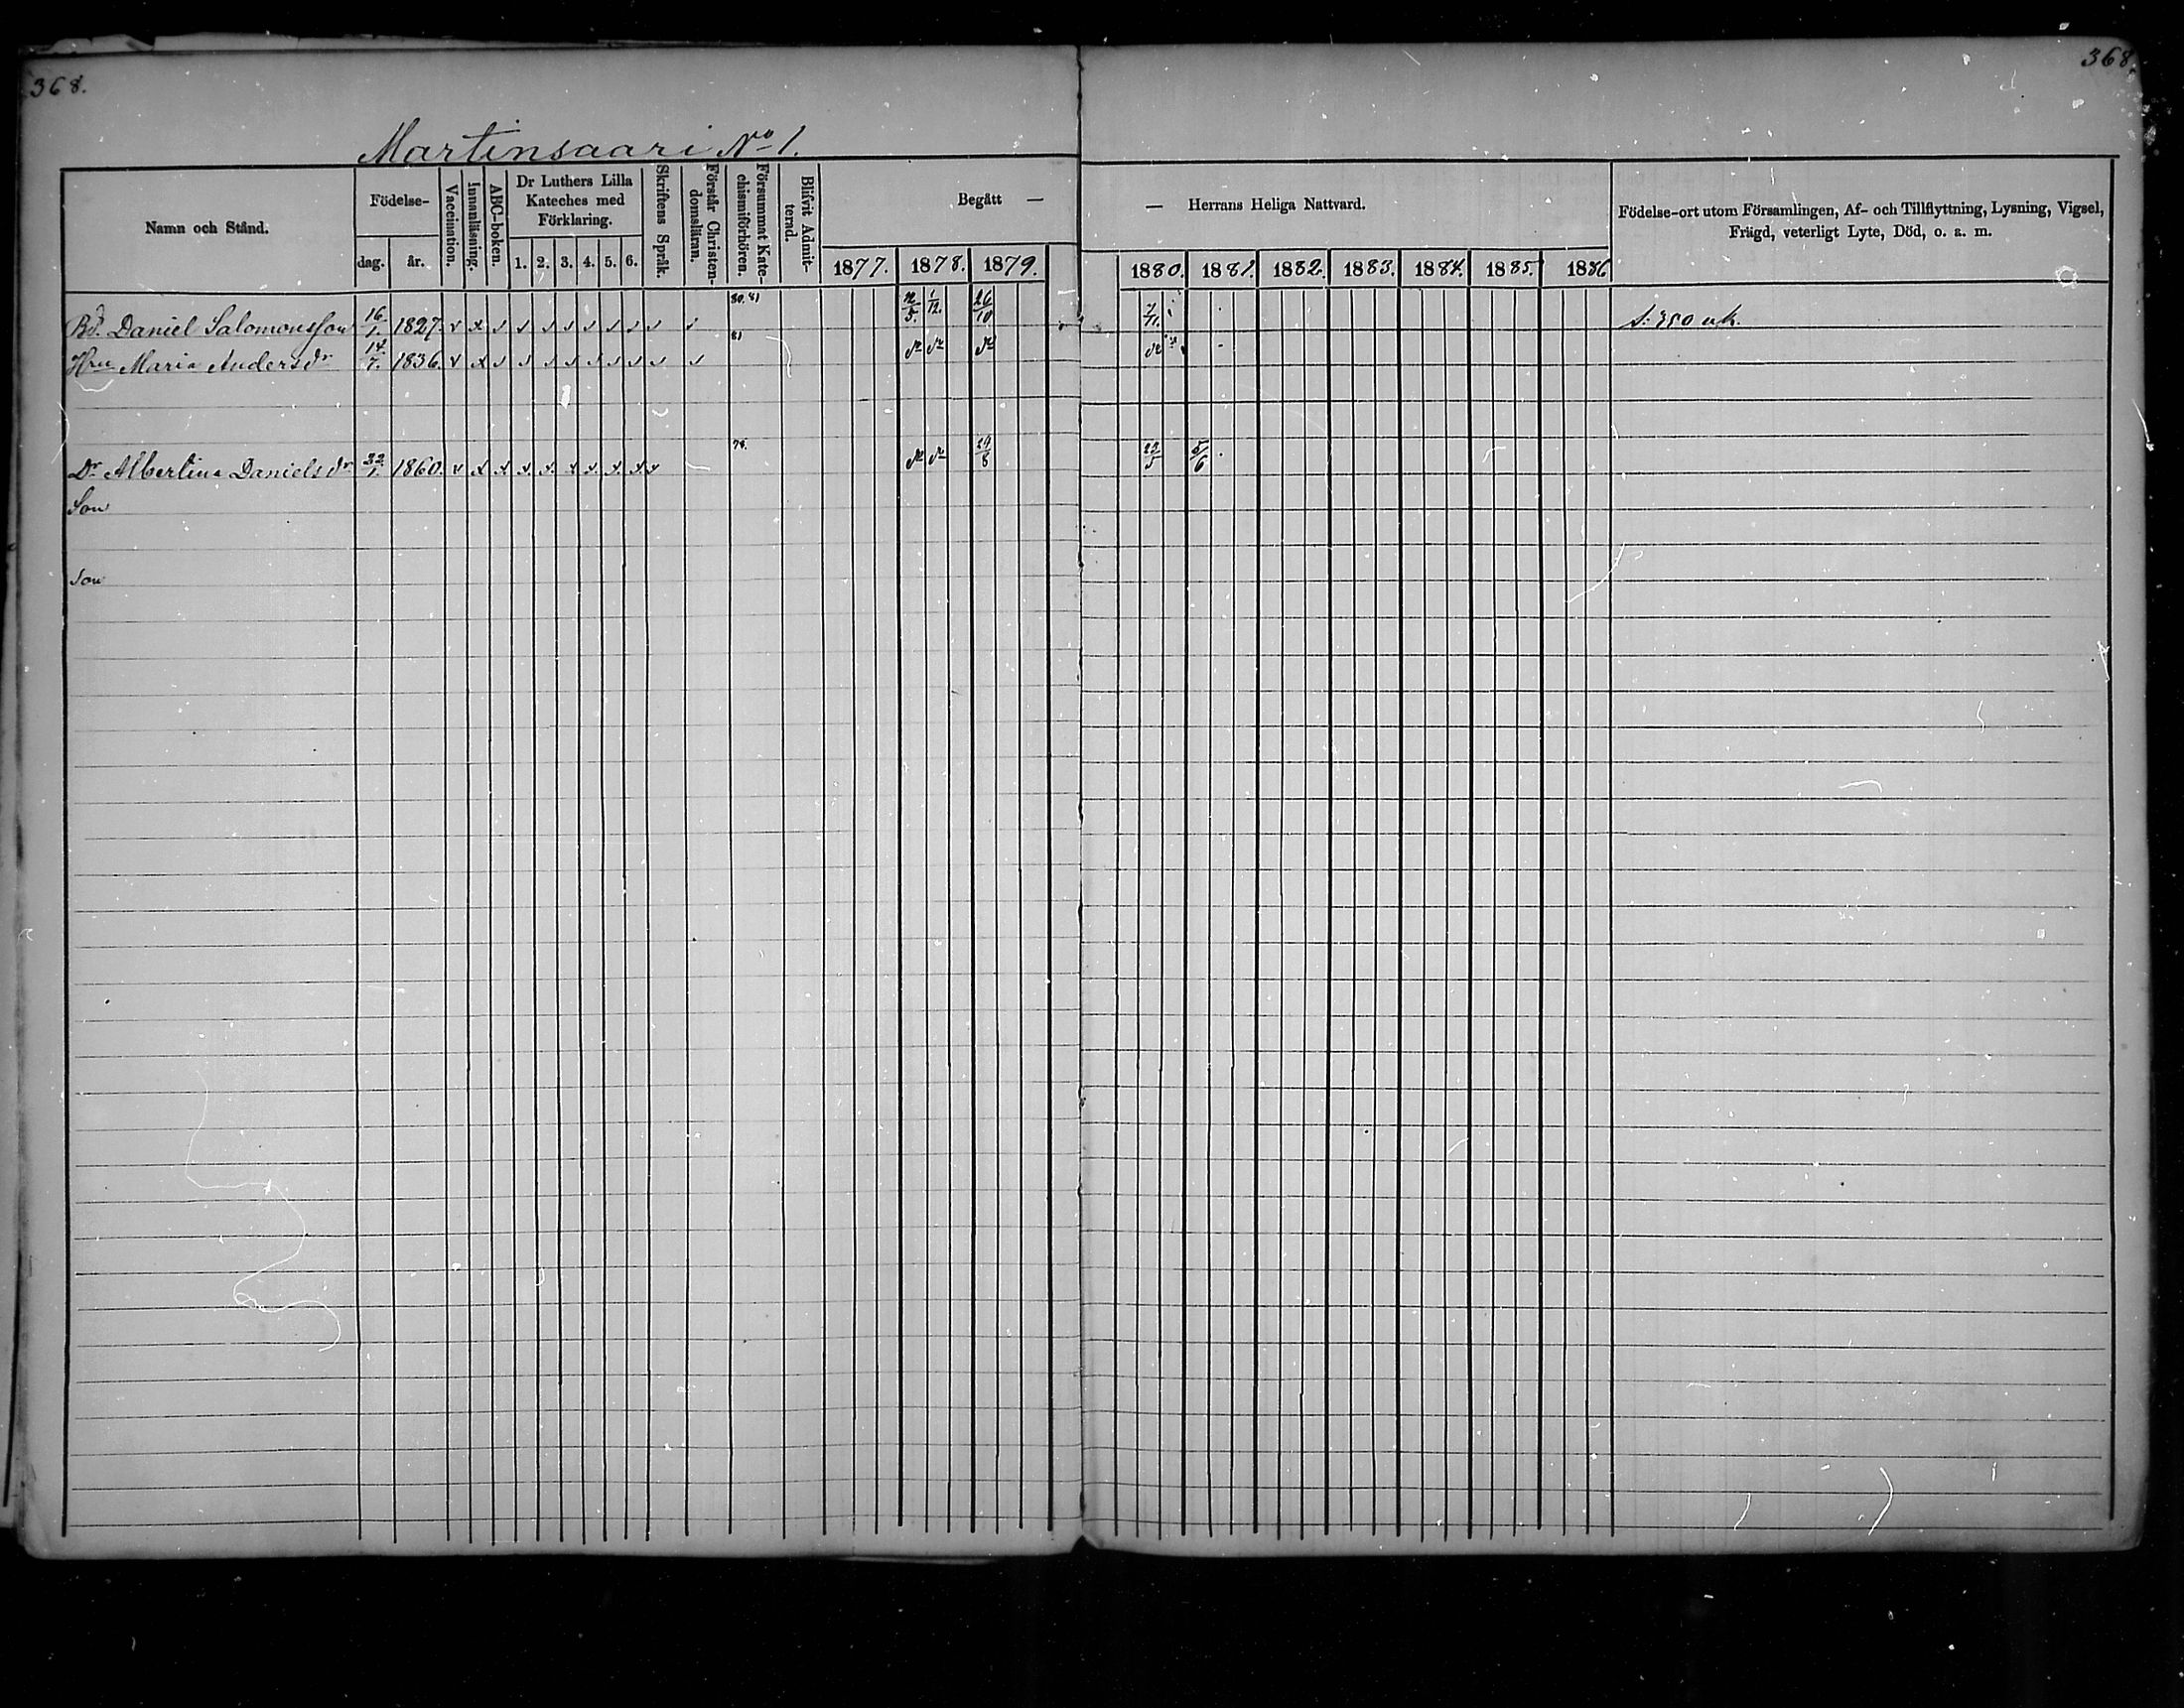 368.
368.
Martinsaari No 1.
Namn och Stånd.
Födelse-
dag.
år.
Vaccination.
Innanläsning.
ABC-boken.
Dr Luthers Lilla
Kateches med
Förklaring.
1. 2. 3. 4. 5. 6.
Skriftens Språk.
Förstår Christen-
domsläran.
Försummat Kate-
chismiförhören.
Blifvit Admit-
terad.
Begått —
— Herrans Heliga Nattvard.
1877. 1878. 1879.
1880. 1881. 1882. 1883. 1884. 1885. 1886
Födelse-ort utom Församlingen, Af- och Tillflyttning, Lysning, Vigsel,
Frägd, veterligt Lyte, Död, o. a. m.
Bd. Daniel Salomonsson 16/1. 1827. 80. 81 1/12. 26/10
Hru Maria Andersdr 14/7. 1836. 81 do do do do
Dr Albertina Danielsdr 22/1. 1860. 78. do do 24/8 23/5 5/6
Son
Son